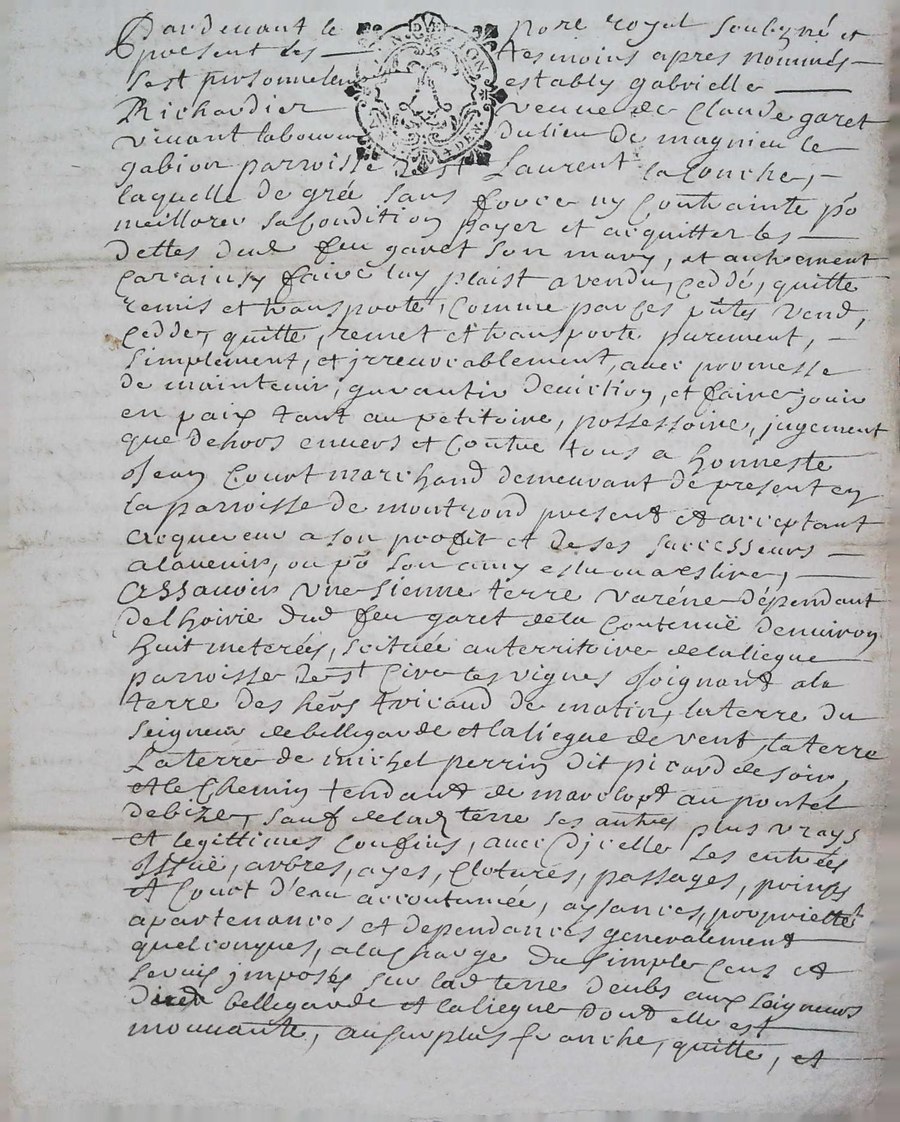 Pardevant le nore royal soubzné et
present les — tesmoins apres nommés —
s'est personnelem establÿ gabrielle —
Richardier veuve de Claude garet
vivant laboureur du lieu de magnieu le
gabion parroisse de st Laurent la Conche, —
laquelle de gré sans force ny Contrainte po
meillorer sa Condition payer et acquitter les —
dettes dud feu garet son mary, et autrement
Car ainsy faire luy plaist a vendu, Ceddé, quitté
remis et transporté, Comme par Ces pntes vend,
Cedde, quitte, remet et transporte purement, —
simplement, et jrreuocablement, auec promesse
de maintenir, garantir deuiction, et faire jouir
en paix tant au petitoire, possessoire, jugement
que dehors enuers et Contre tous a honneste
Jean Court marchand demeurant de present en
la parroisse de montrond present et acceptant
acquereur a son proffit et de ses successeurs —
alauenir, ou po son amy eslu ou a eslire, —
Assauoir vne sienne terre varéne dépendant
de lhoirie dud feu garet de la Contenuë denuiron
huit meterées, scituée au territoire de la liegue
parroisse de st Cire les vignes Joignant ala
terre des hers tricaud de matin, la terre du
seigneur de bellegarde et la liegue de vent, la terre
La terre de michel perrin dit picard de soir,
et le Chemin tendant de marclopt au pontel
de bize, sauf de lad terre ses autres plus vrays
et legittimes Confins, auec Djcelle Les entrées
Jssuë, arbres, ayes, Clotures, passages, prinses
et Court d'eau accoutumée, aysances, proprietté
apartenances et dependances generalement
quelconques, ala Charge du simple Cens et
seruis jmposés sur lad terre deubs aux seigneurs
dud bellegarde et la liegue dont elle est
mouuante, au surplus franche, quitte, et